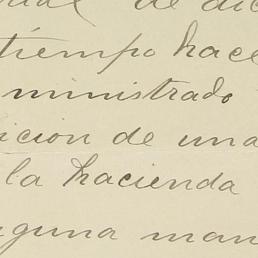 de dic
tiempo hace
ministrado
icion de una
la hacienda
nguna man